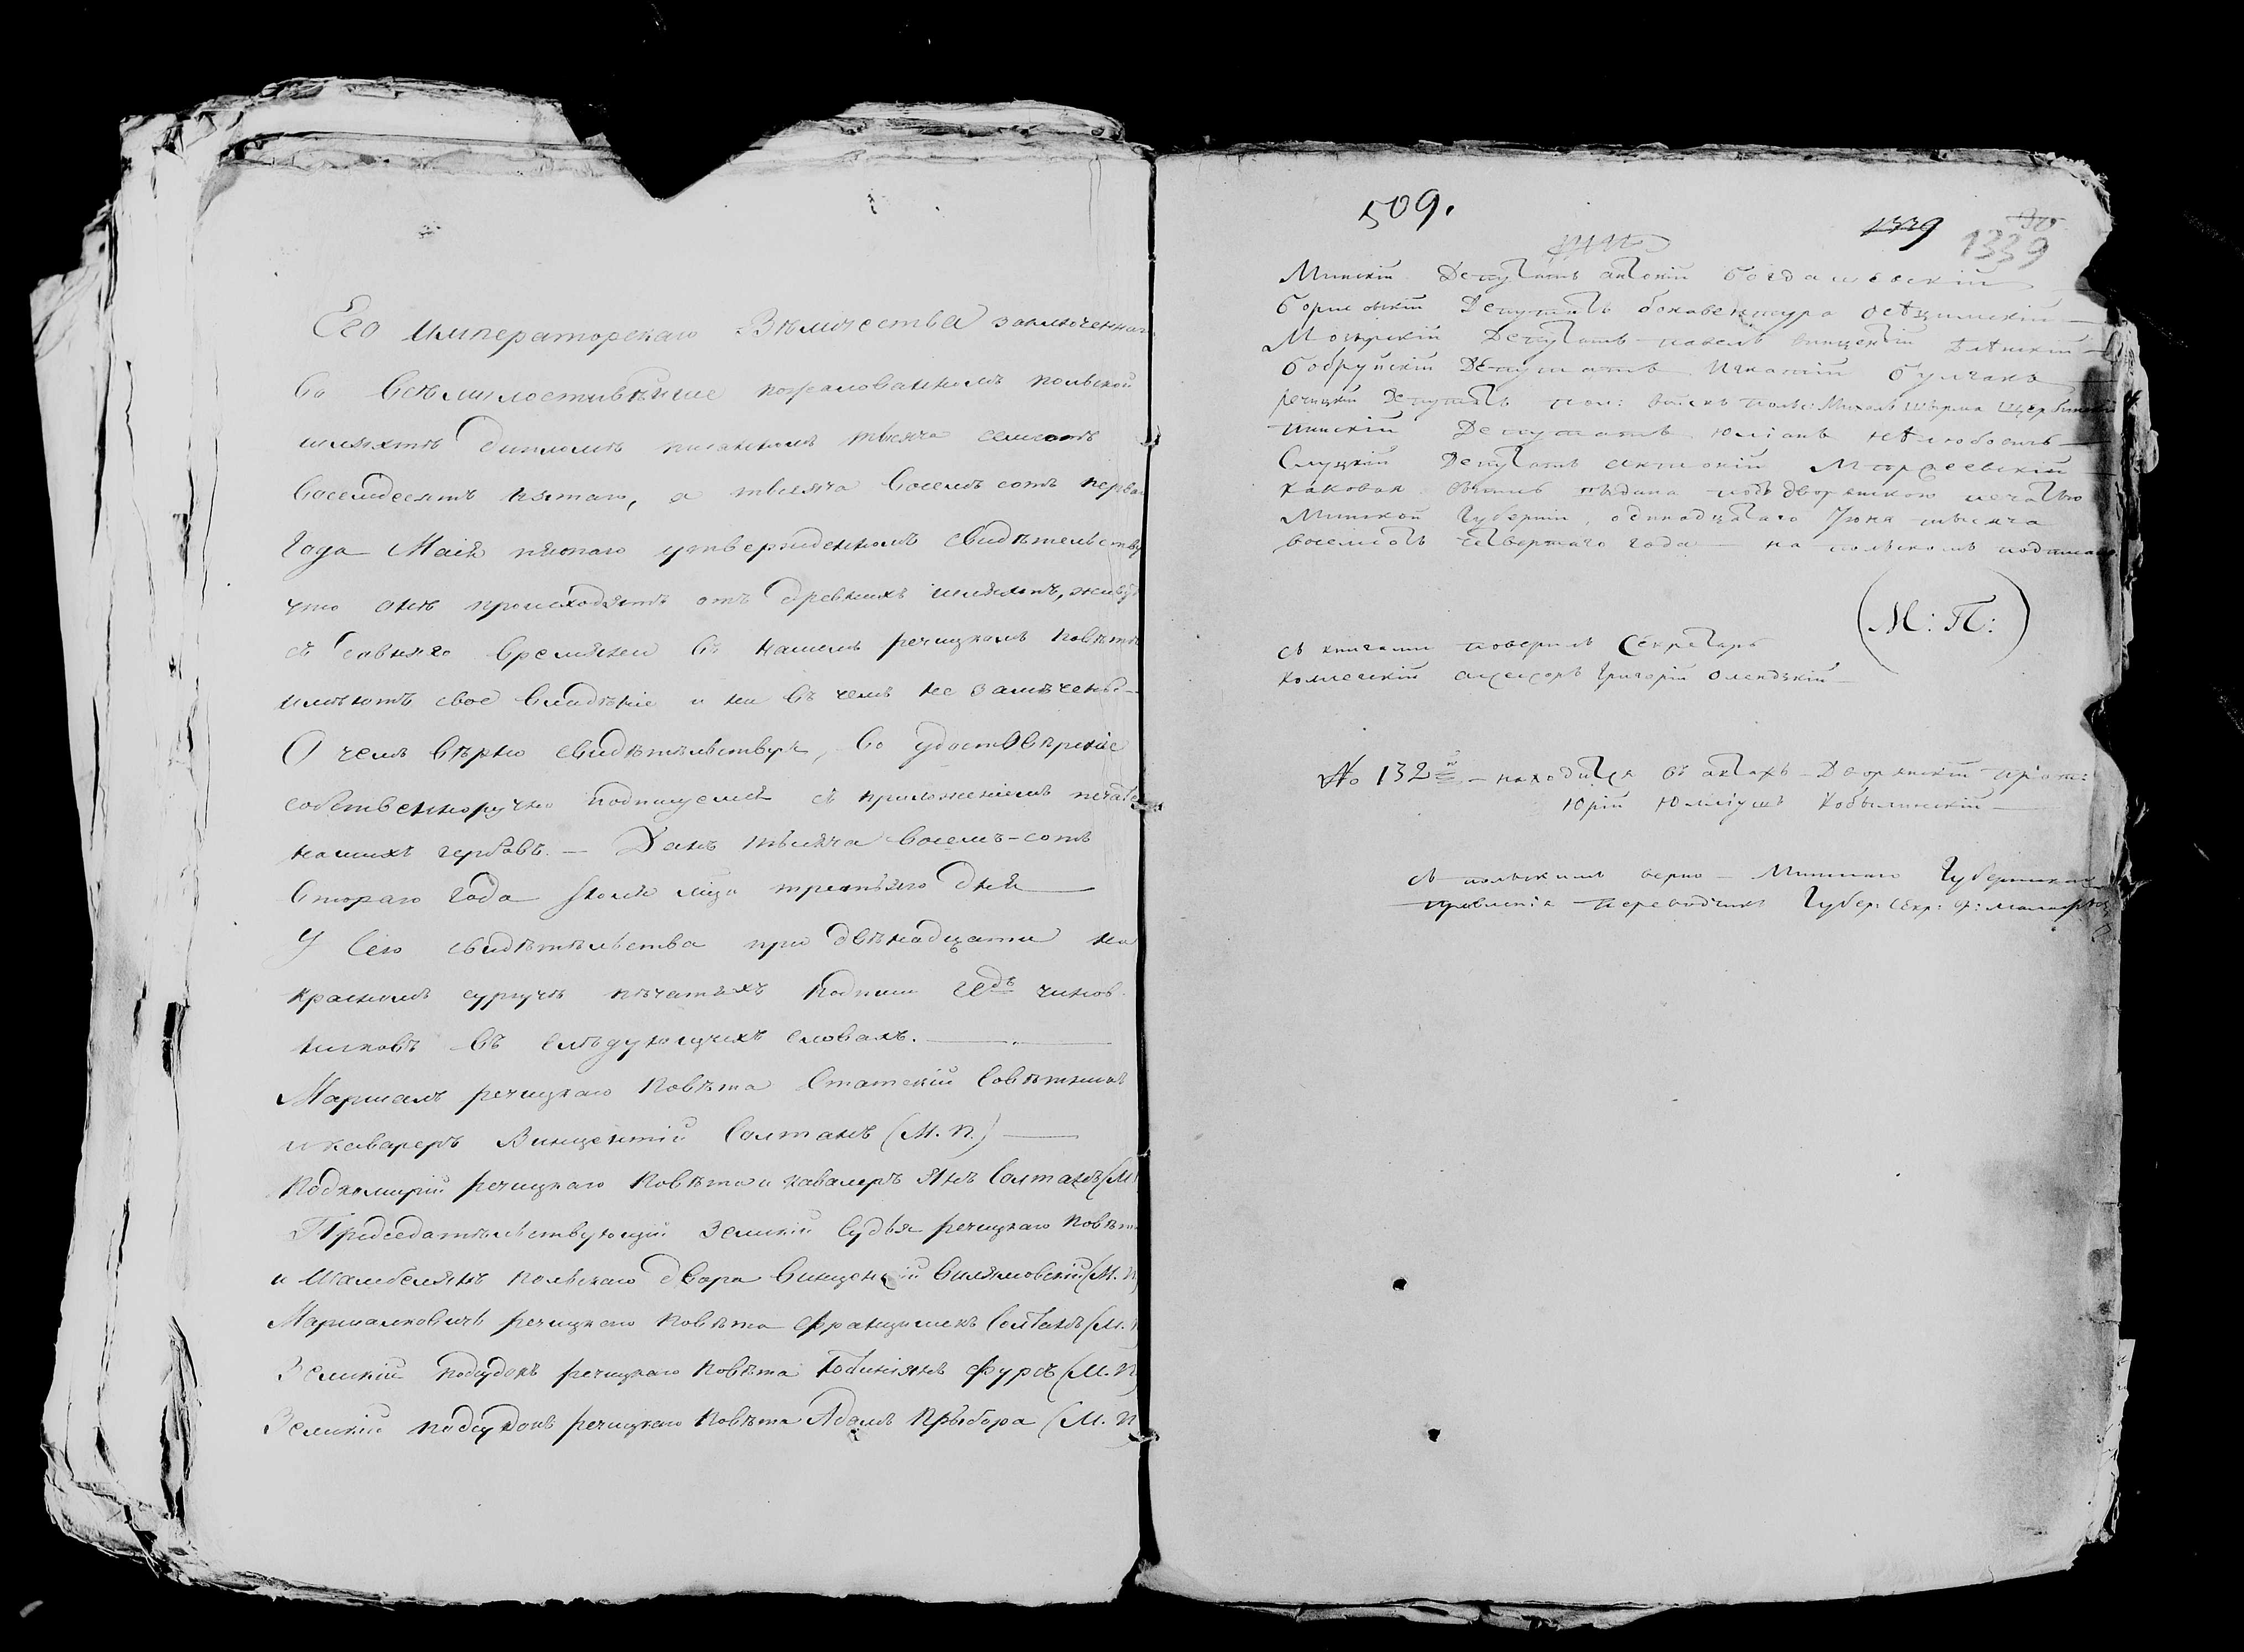 Его Императорскаго Вѣличества заключенна
во всѣмилостивѣйше пожалованномъ польской
шляхтѣ дипломѣ писанномъ тысяча семсотъ
восемдесятъ пятаго, а тысяча восемъ сотъ перва
года Маія пятаго утвержденномъ свидѣтельству
что онѣ происходятъ отъ древнихъ шляхтъ, живу
съ давняго времяни въ нашемъ речицкомъ повѣтѣ
имѣютъ свое владѣніе и ни въ чемъ не замѣчены
О чемъ вѣрно свидѣтѣльствуя, во удостовѣреніе
собственноручно подписуемся съ приложеніемъ печатей
нашихъ гербовъ. — Данъ тысяча восемъ-сотъ
втораго года Іюля мца третьяго дня
У сего свидѣтѣльства при двѣнадцати на
красномъ сургучѣ пѣчатяхъ подписи чинов
никовъ въ слѣдующихъ словахъ.
Маршалъ речицкаго повѣта Статскій Совѣтникъ
и каварерѣ Винцентій Солтанъ (М. П.)
Подкоморій речицкаго повѣта и кавалеръ Янъ Солтанъ (М
Предсѣдатѣльствующій Земскій Судья речицкаго повѣт
и Шамбелянъ польскаго двора Винцентій Вилямовскій (М. П
Маршалковичъ речицкаго повѣта Францишекъ Солтанъ (М.
Земскій подсудокъ речицкаго повѣта Фурсъ (М. П
Земскій подсудокъ речицкаго повѣта Адамъ Прыбора (М. П
509.
1339
1339
Минскій Депутатъ антоній богдашевскій
борисовскій Депутатъ бонавентура
Мозырскій Депутатъ павелъ винцентій
бобруйскій Депутатъ Игнатій булгакъ
речицкій Депутатъ пол: войскъ полк: Михалъ
пинскій Депутатъ юліанъ
Слуцкій Депутатъ антоній
каковая выпись выдана подъ дворянскою печатью
Минской Губерніи, одинадцатаго Іюня тысяча
восемсотъ четвертаго года — на польскомъ подписано
(М: П:)
съ книгами поверилъ Секретарь
коллескій асесоръ григорій олендзкій
№ 132й — находится въ актахъ — Дворянскій прот:
Юрій Юлліушъ Кобылинскій
съ польскимъ верно — Минскаго Губернскаго
правленія переводчикъ Губер: Секр: